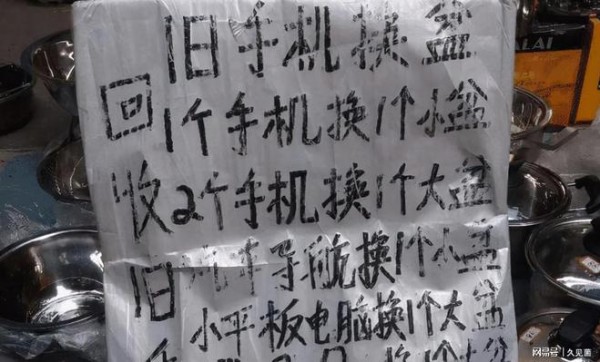 旧手机换盆
回1个手机换1个小盆
收2个手机换1个大盆
旧汽车导航换1个小盆
小平板电脑换1个大盆
手
ALAI
网易号 | 久见菌